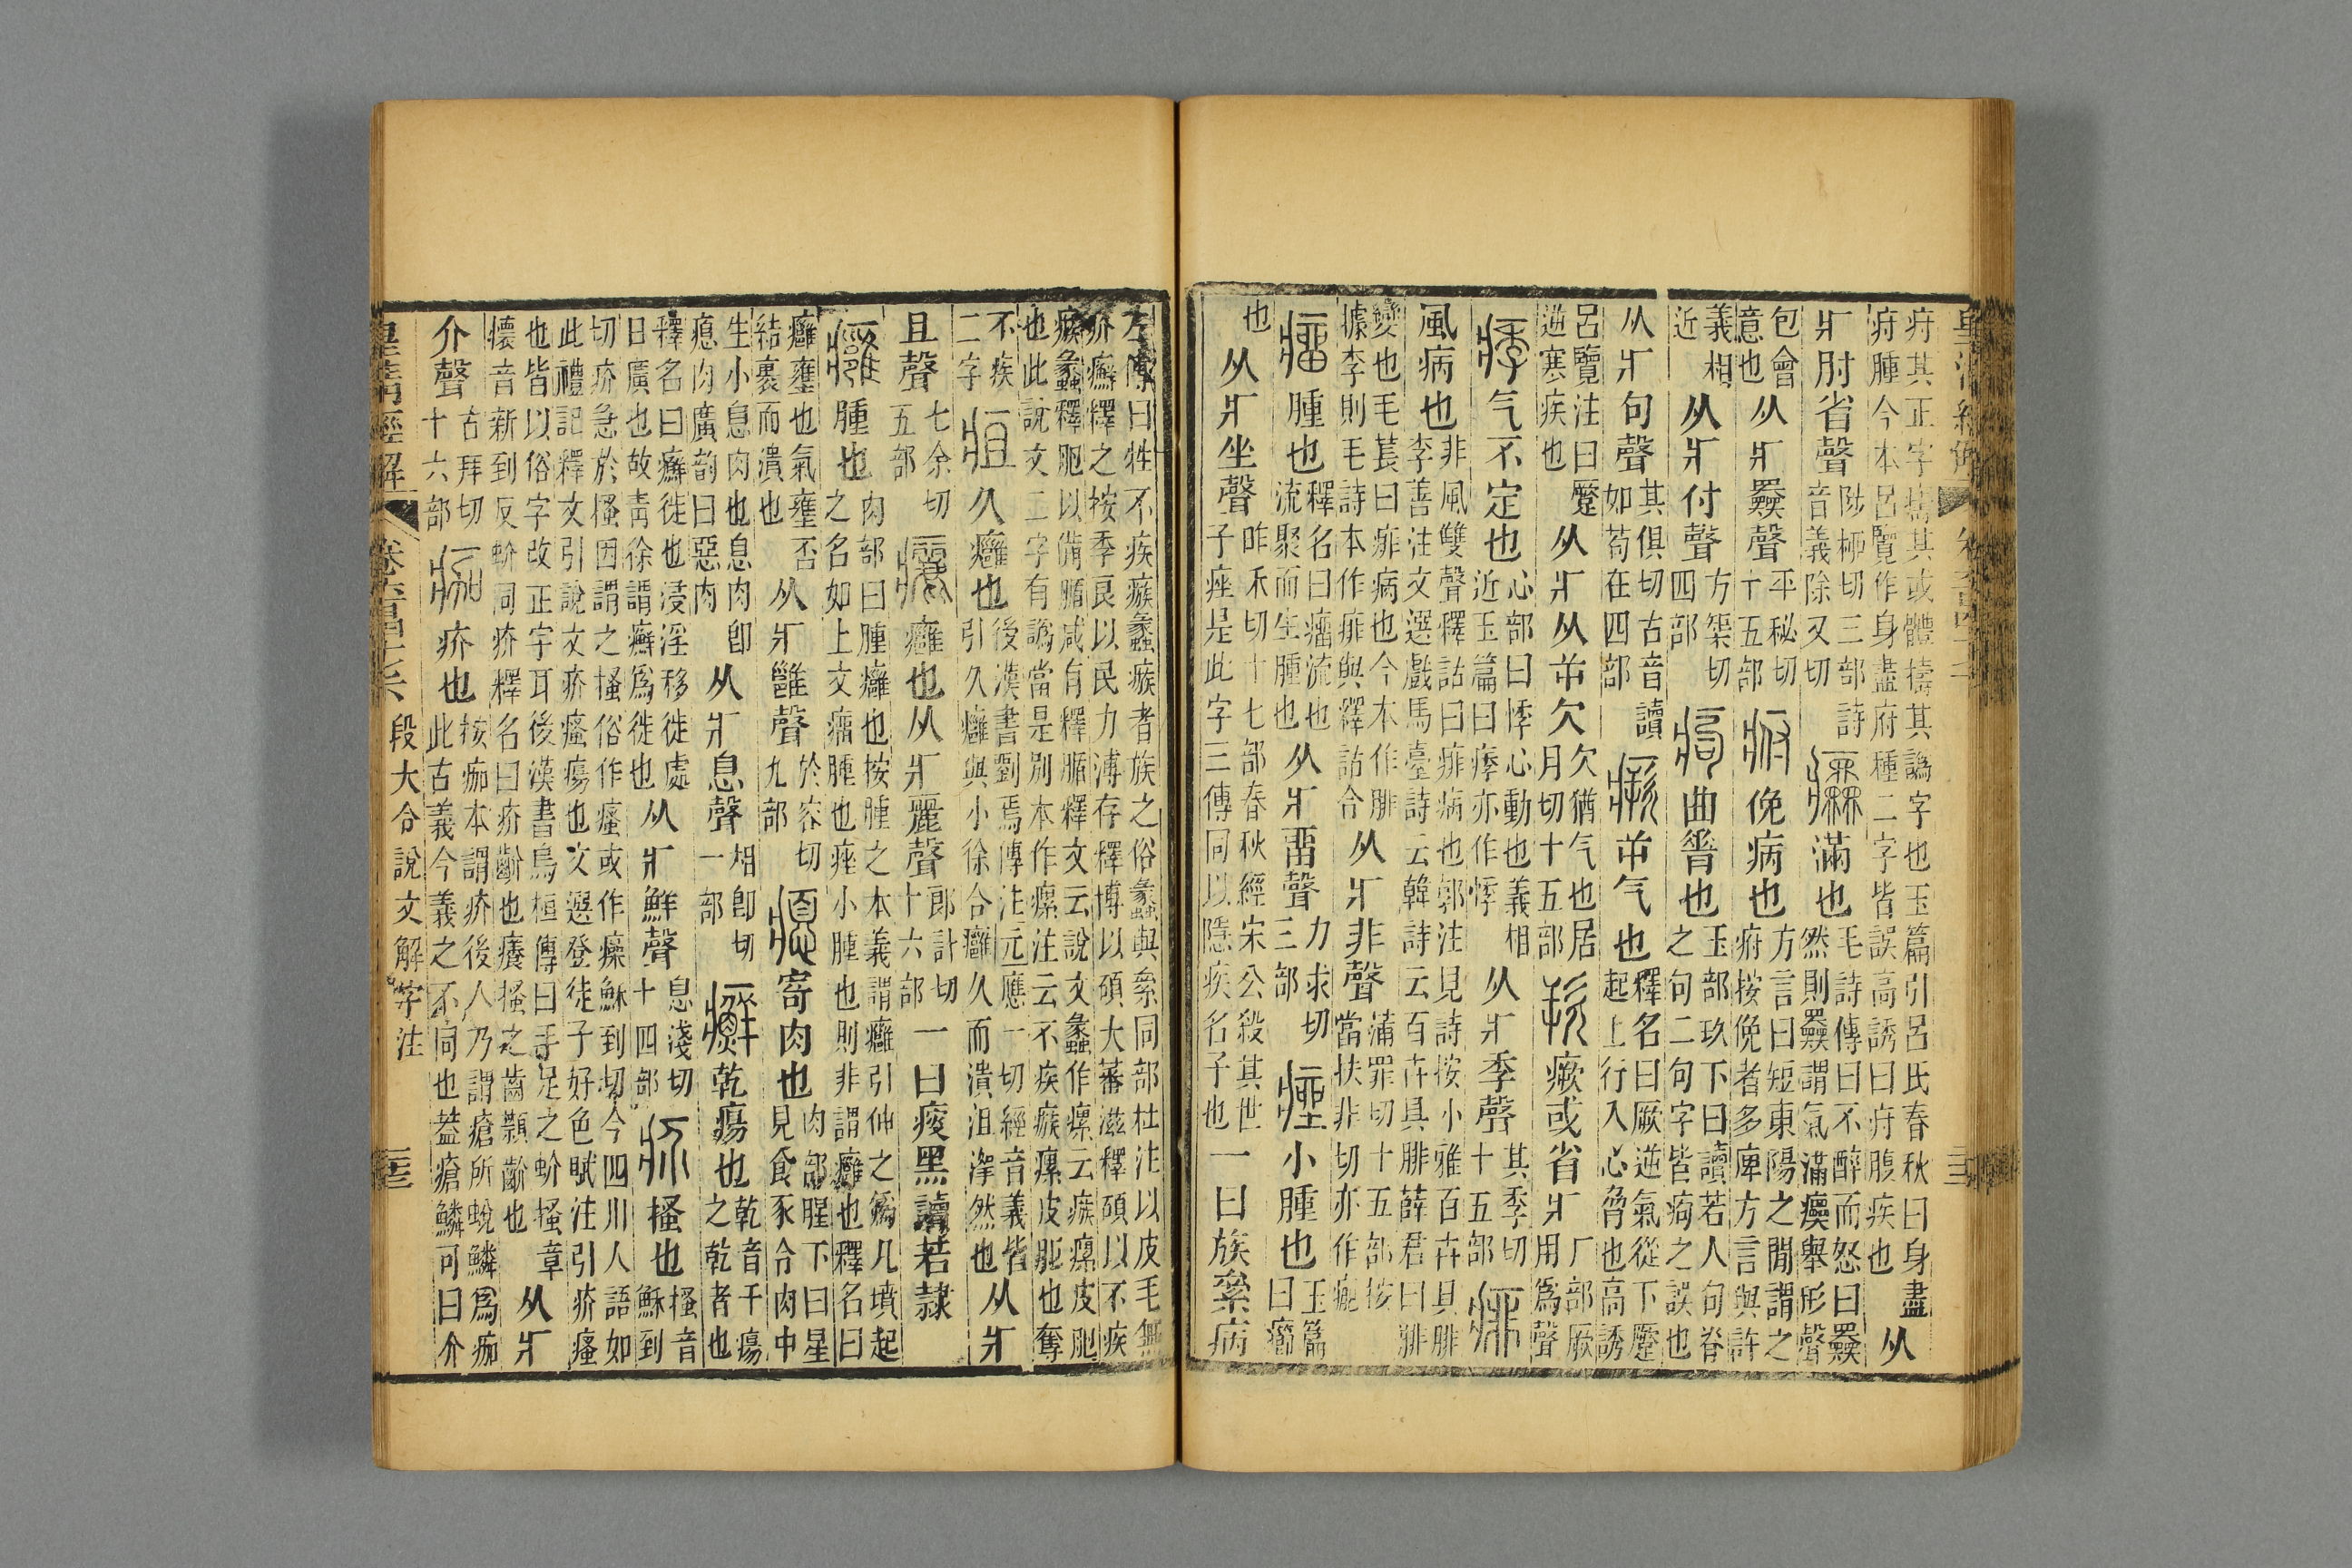 疛其正字𢷎其或體擣其譌字也玉篇引呂氏春秋曰身盡疛腫今本呂覽作身盡府種二字皆誤高誘曰疛腹疾也从
疒肘省聲陟柳切三部詩音義除又切滿也毛詩傳曰不醉而怒曰奰然則奰謂氣滿舉形聲
包會意也从疒奰聲平秘切十五部俛病也方言曰短東陽之閒謂之府按俛者多庳方言與許
義相近从疒付聲方榘切四部痀曲脊也玉部玖下曰讀若人句脊之句二句字皆痀之誤也
从疒句聲其俱切古音讀如苟在四部瘚屰气也釋名曰厥逆氣從下蹷起上行入心脅也高誘
呂覽注曰蹷逆寒疾也从疒从屰欠欠猶气也居月切十五部欮瘚或省疒厂部厥用爲聲
痵气不定也心部曰悸心動也義相近玉篇曰痵亦作悸从疒季聲其季切十五部痱
風病也非風雙聲釋詁曰痱病也郭注見詩按小雅百卉具腓李善注文選戲馬臺詩云韓詩云百卉具腓薛君曰腓
變也毛萇曰痱病也今本作腓據李則毛詩本作痱與釋詁合从疒非聲蒲罪切十五部按當扶非切亦作
瘤腫也釋名曰瘤流也流聚而生腫也从疒畱聲力求切三部痤小腫也玉篇曰癤
也从疒坐聲昨禾切十七部春秋經宋公殺其世子痤是此字三傳同以隱疾名子也一曰族絫病
左傳曰牲不疾瘯蠡瘯者族之俗蠡與絫同部杜注以皮毛無疥癬釋之按季良以民力溥存釋博以碩大蕃滋釋碩以不疾
瘯蠡釋肥以備腯咸有釋腯釋文云說文蠡作瘰云瘯瘰皮肥也此說文二字有譌當是別本作瘰注云不疾瘯瘰皮肥也奪
不疾二字疽久癰也後漢書劉焉傳注元應一切經音義皆引久癰與小徐合癰久而潰沮濘然也从疒
且聲七余切五部癰也从疒麗聲郎計切十六部一曰瘦黑讀若隸
癰腫也肉部曰腫癰也按腫之本義謂癰引伸之爲凡墳起之名如上文瘤腫也痤小腫也則非謂癰也釋名曰
癰壅也氣壅否結裹而潰也从疒雝聲於容切九部瘜寄肉也肉部腥下曰星見食豕令肉中
生小息肉也息肉卽瘜肉廣韵曰惡肉从疒息聲相卽切一部癬乾瘍也乾音干瘍之乾者也
釋名曰癬徙也浸淫移徙處日廣也故靑徐謂癬爲徙也从疒鮮聲息淺切十四部疥搔也搔音穌到
切疥急於搔因謂之搔俗作瘙或作㿋穌到切今四川人語如此禮記釋文引說文疥瘙瘍也文選登徒子好色賦注引疥瘙
也皆以俗字改正字耳後漢書烏桓傳曰手足之蚧搔章懷音新到反蚧同疥釋名曰疥齘也癢搔之齒類齘也从疒
介聲古拜切十六部痂疥也按痂本謂疥後人乃謂瘡所蛻鱗爲痂此古義今義之不同也葢瘡鱗可曰介
皇淸經解
段大令說文解字注